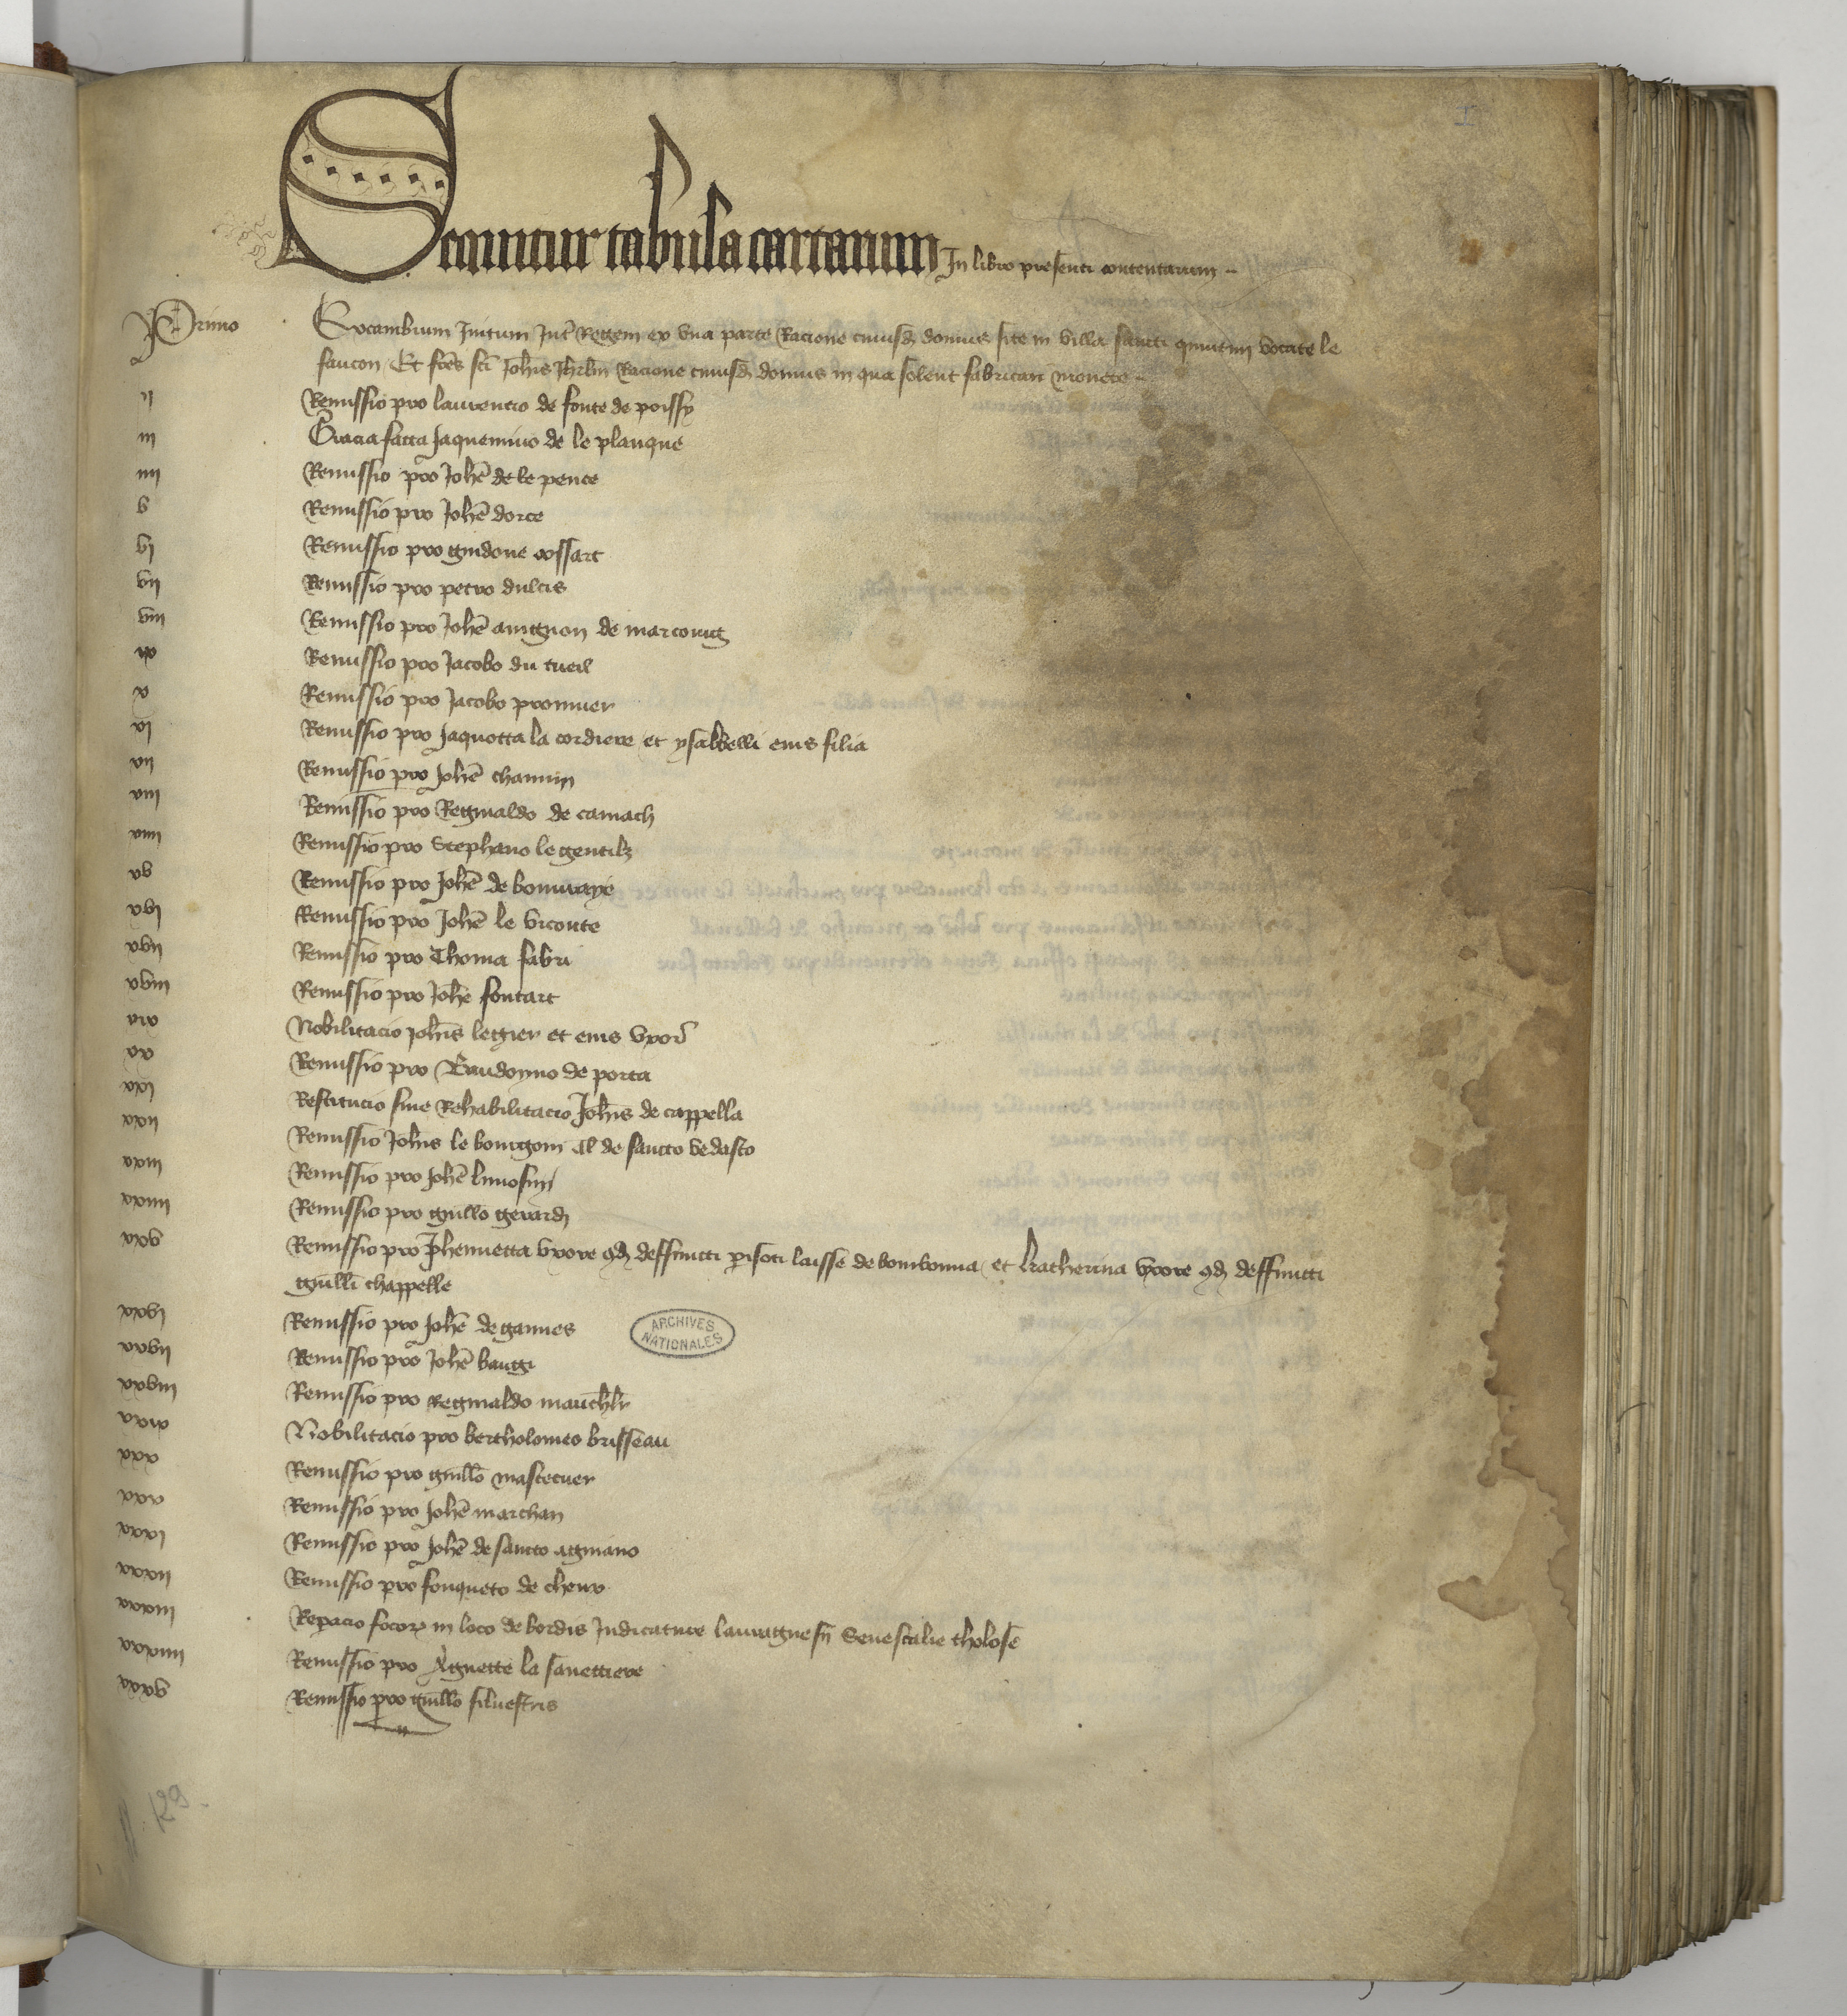 Secuntur tabula cartarum In libro presenti contentarum
Primo Excambium Initum Int' Regem ex una parte Racione cuiusd domus site in villa sancti quintini vocate le
faucon Et fres sci Johis Jhrlm Racione cuiusd domus in qua solent fabricari monete
ii Remissio pro laurencio de fonte de poissy
iii Gracia facta Jaquemino de le planque
iiii Remissio pro Johe de le pence
v Remissio pro Johe dorce
vi Remissio pro guidone cossart
vii Remissio pro petro dulcis
viii Remissio pro Johe auignon de marconig
ix Remissio pro Jacobo du tueil
x Remissio pro Jacobo promier
xi Remissio pro Jaquotta la cordiere et ysabelli eius filia
xii Remissio pro Johe chamin
xiii Remissio pro Reginaldo de camach
xiiii Remissio pro Stephano le gentilz
xv Remissio pro Johe de bonnraye
xvi Remissio pro Johe le viconte
xvii Remissio pro Thoma fabri
xviii Remissio pro Johe fontart
xix Nobilitacio Johis legier et eius uxor
xx Remissio pro Baudoyno de porta
xxi Restitucio sive Rehabilitacio Johis de cappella
xxii Remissio Johis le bourgoin al de sancto vedasto
xxiii Remissio pro Johe limosin
xxiiii Remissio pro guillo gerard
xxv Remissio pro Jehennetta uxore qd deffuncti laisse de et katherina uxore qd deffuncti
guilli chappelle
xxvi Remissio pro Johe de gannes
xxvii Remissio pro Johe baugi
xxviii Remissio pro Reginaldo mauchlr
xxix Nobilitacio pro bertholomeo brisseau
xxx Remissio pro guillo mastetuer
xxx Remissio pro Johe marchan
xxxi Remissio pro Johe de sancto agniano
xxxii Remissio pro fouqueto de chenx
xxxiii Repacio focor in loco de bordis Judicature lauraguesii Senescalie tholose
xxxiiii Remissio pro Agnette la sauettiere
xxxv Remissio pro guillo siluestris
ARCHIVES
NATIONALES
129